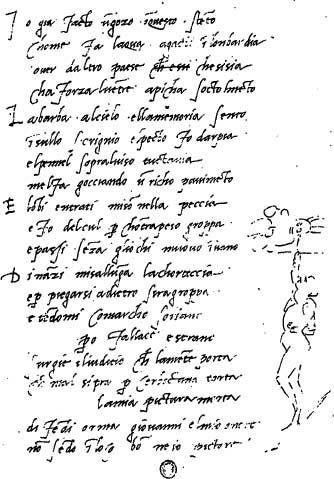 I o gia facto ũ gozo ĩ questo stẽto
chome fa laqua agacti ĩ lombardia
over daltro paese che sisia
cha forza lventre apicha socto lmẽto
La barba alcielo ella memoria sento
ĩ sullo scrignio e lpecto fo darpia
e lpennel sopra luiso tuctauia
mel fa gocciando ũ richo pauimẽto
E lobi entrati miso nella peccia
e fo del cul p chotrapeso groppa
e passi sẽza gliochi muouo ĩuano
Dinãzi misallũga lachorteccia
e p piegarsi adietro si ragroppa
e tẽdomi comarcho soriano
po fallace e strano
surgie il iuditio che lamẽte porta
che mal si tra p cerboctana torta
la mia pictura morta
difẽdi orma giouanni el mio onore
nõ sẽdo ĩ loco bõ ne io pictore